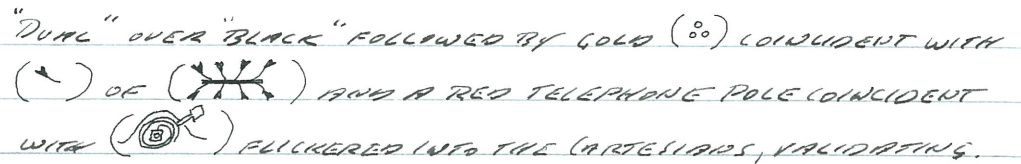 "DUAL" OVER "BLACK" FOLLOWED BY GOLD ( ) COINCIDENT WITH
( ) OF ( ) AND A RED TELEPHONE POLE COINCIDENT
WITH ( ) FLICKERED INTO THE CARTESIANS, VALIDATING.